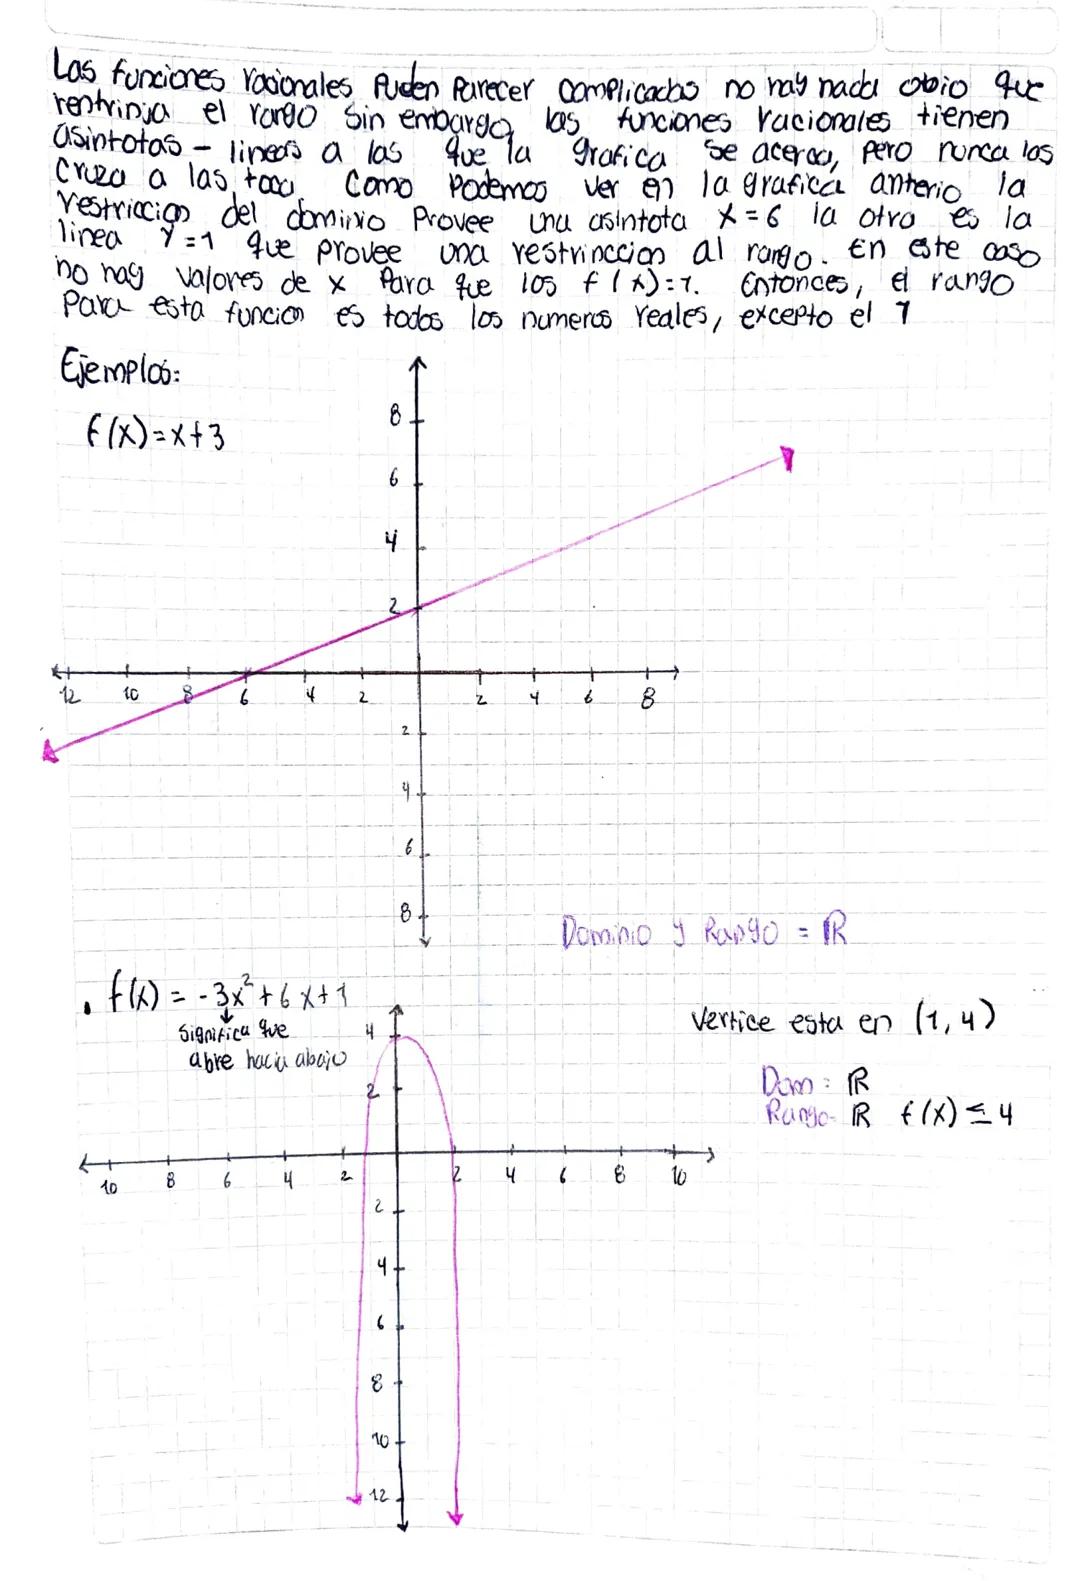 Las funciones racionales Pueden Parecer complicadas no hay nada obio que
rentrinja el rango Sin embargo, las funciones racionales tienen
asintotas - lineas a las que la grafica se acerca, pero nunca las
Cruza a las toca Como Podemos ver en la grafica anterio la
restriccion del dominio Provee una asintota x = 6 la otra es la
linea Y = 1 que provee una restrinccion al rango. En este caso
no hay valores de x Para que los f(x) = 1. Entonces, el rango
Para esta funcion es todos los numeros reales, excepto el 1
Ejemplos:
f(x) = x + 3
8
6
4
2
12 10 8 6 4 2 2 4 6 8
2
4
6
8
Dominio y Rango = ℝ
. f(x) = -3x² + 6x + 1
Significa que
abre hacia abajo
Vertice esta en (1, 4)
Dom: ℝ
Rango- ℝ f(x) ≤ 4
4
2
10 8 6 4 2 2 4 6 8 10
2
4
6
8
10
12